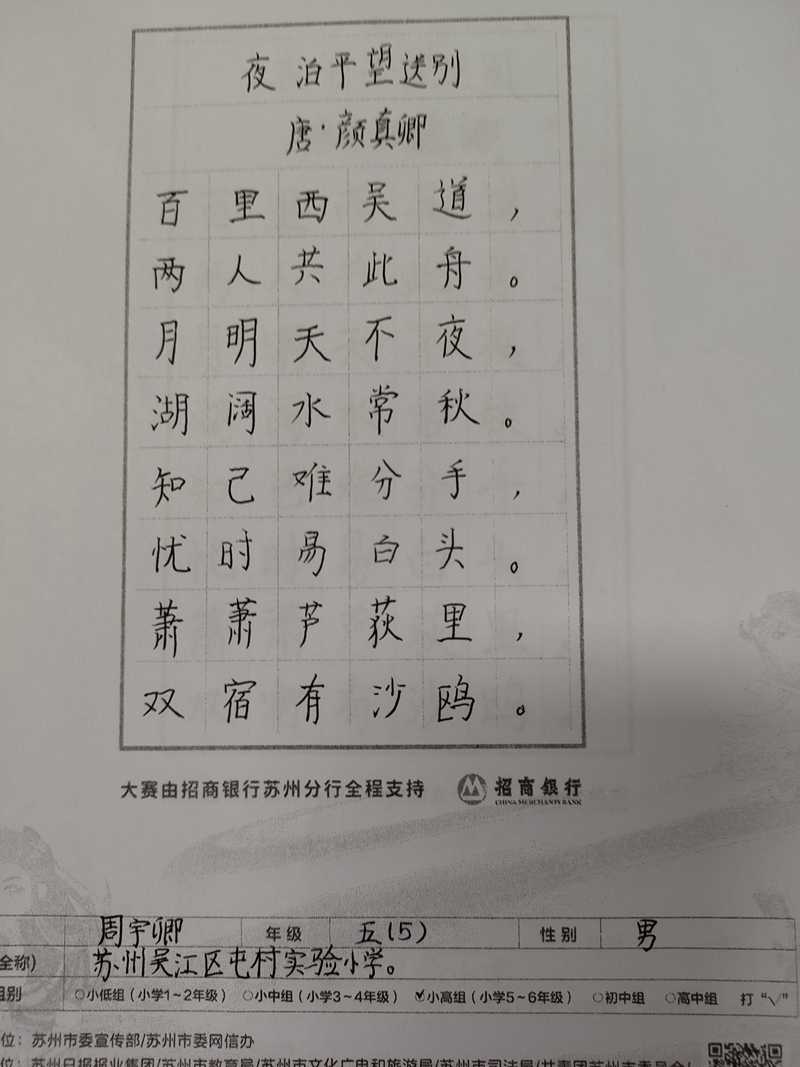 夜泊平望送别
唐·颜真卿
百里西吴道，
两人共此舟。
月明天不夜，
湖阔水常秋。
知己难分手，
忧时易白头。
萧萧芦荻里，
双宿有沙鸥。
大赛由招商银行苏州分行全程支持 招商银行
CHINA MERCHANTS BANK
周宇卿 年级 五(5) 性别 男
全称) 苏州吴江区屯村实验小学。
组别 ○小低组（小学1~2年级） ○小中组（小学3~4年级） ✓小高组（小学5~6年级） ○初中组 ○高中组 打“√”
位：苏州市委宣传部/苏州市委网信办
位：苏州日报报业集团/苏州市教育局/苏州市文化广电和旅游局/苏州市司法局/共青团苏州市委员会/